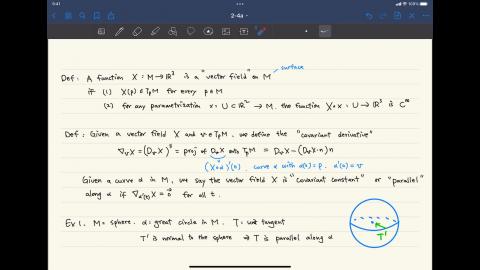 9:41
2-4a
surface
Def: A function X: M→ℝ³ is a "vector field" on M
if (1) X(p) ∈ TpM for every p∈M
(2) for any parametrization x: U⊂ℝ² → M, the function X∘x: U→ℝ³ is C^∞
Def: Given a vector field X and v∈TpM, we define the "covariant derivative"
∇vX = (DvX)^T = proj of DvX onto TpM = DvX-(DvX·n)n
(X∘α)'(0), curve α with α(0)=p, α'(0)=v
Given a curve α in M, we say the vector field X is "covariant constant" or "parallel"
along α if ∇α'(t)X = 0⃗ for all t.
Ex 1. M= sphere. α= great circle in M. T= unit tangent
T' is normal to the sphere ⇒ T is parallel along α
T'